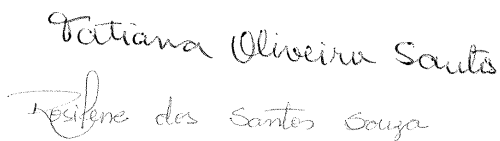 Tatiana Oliveira Santos
Rosilene dos Santos Souza